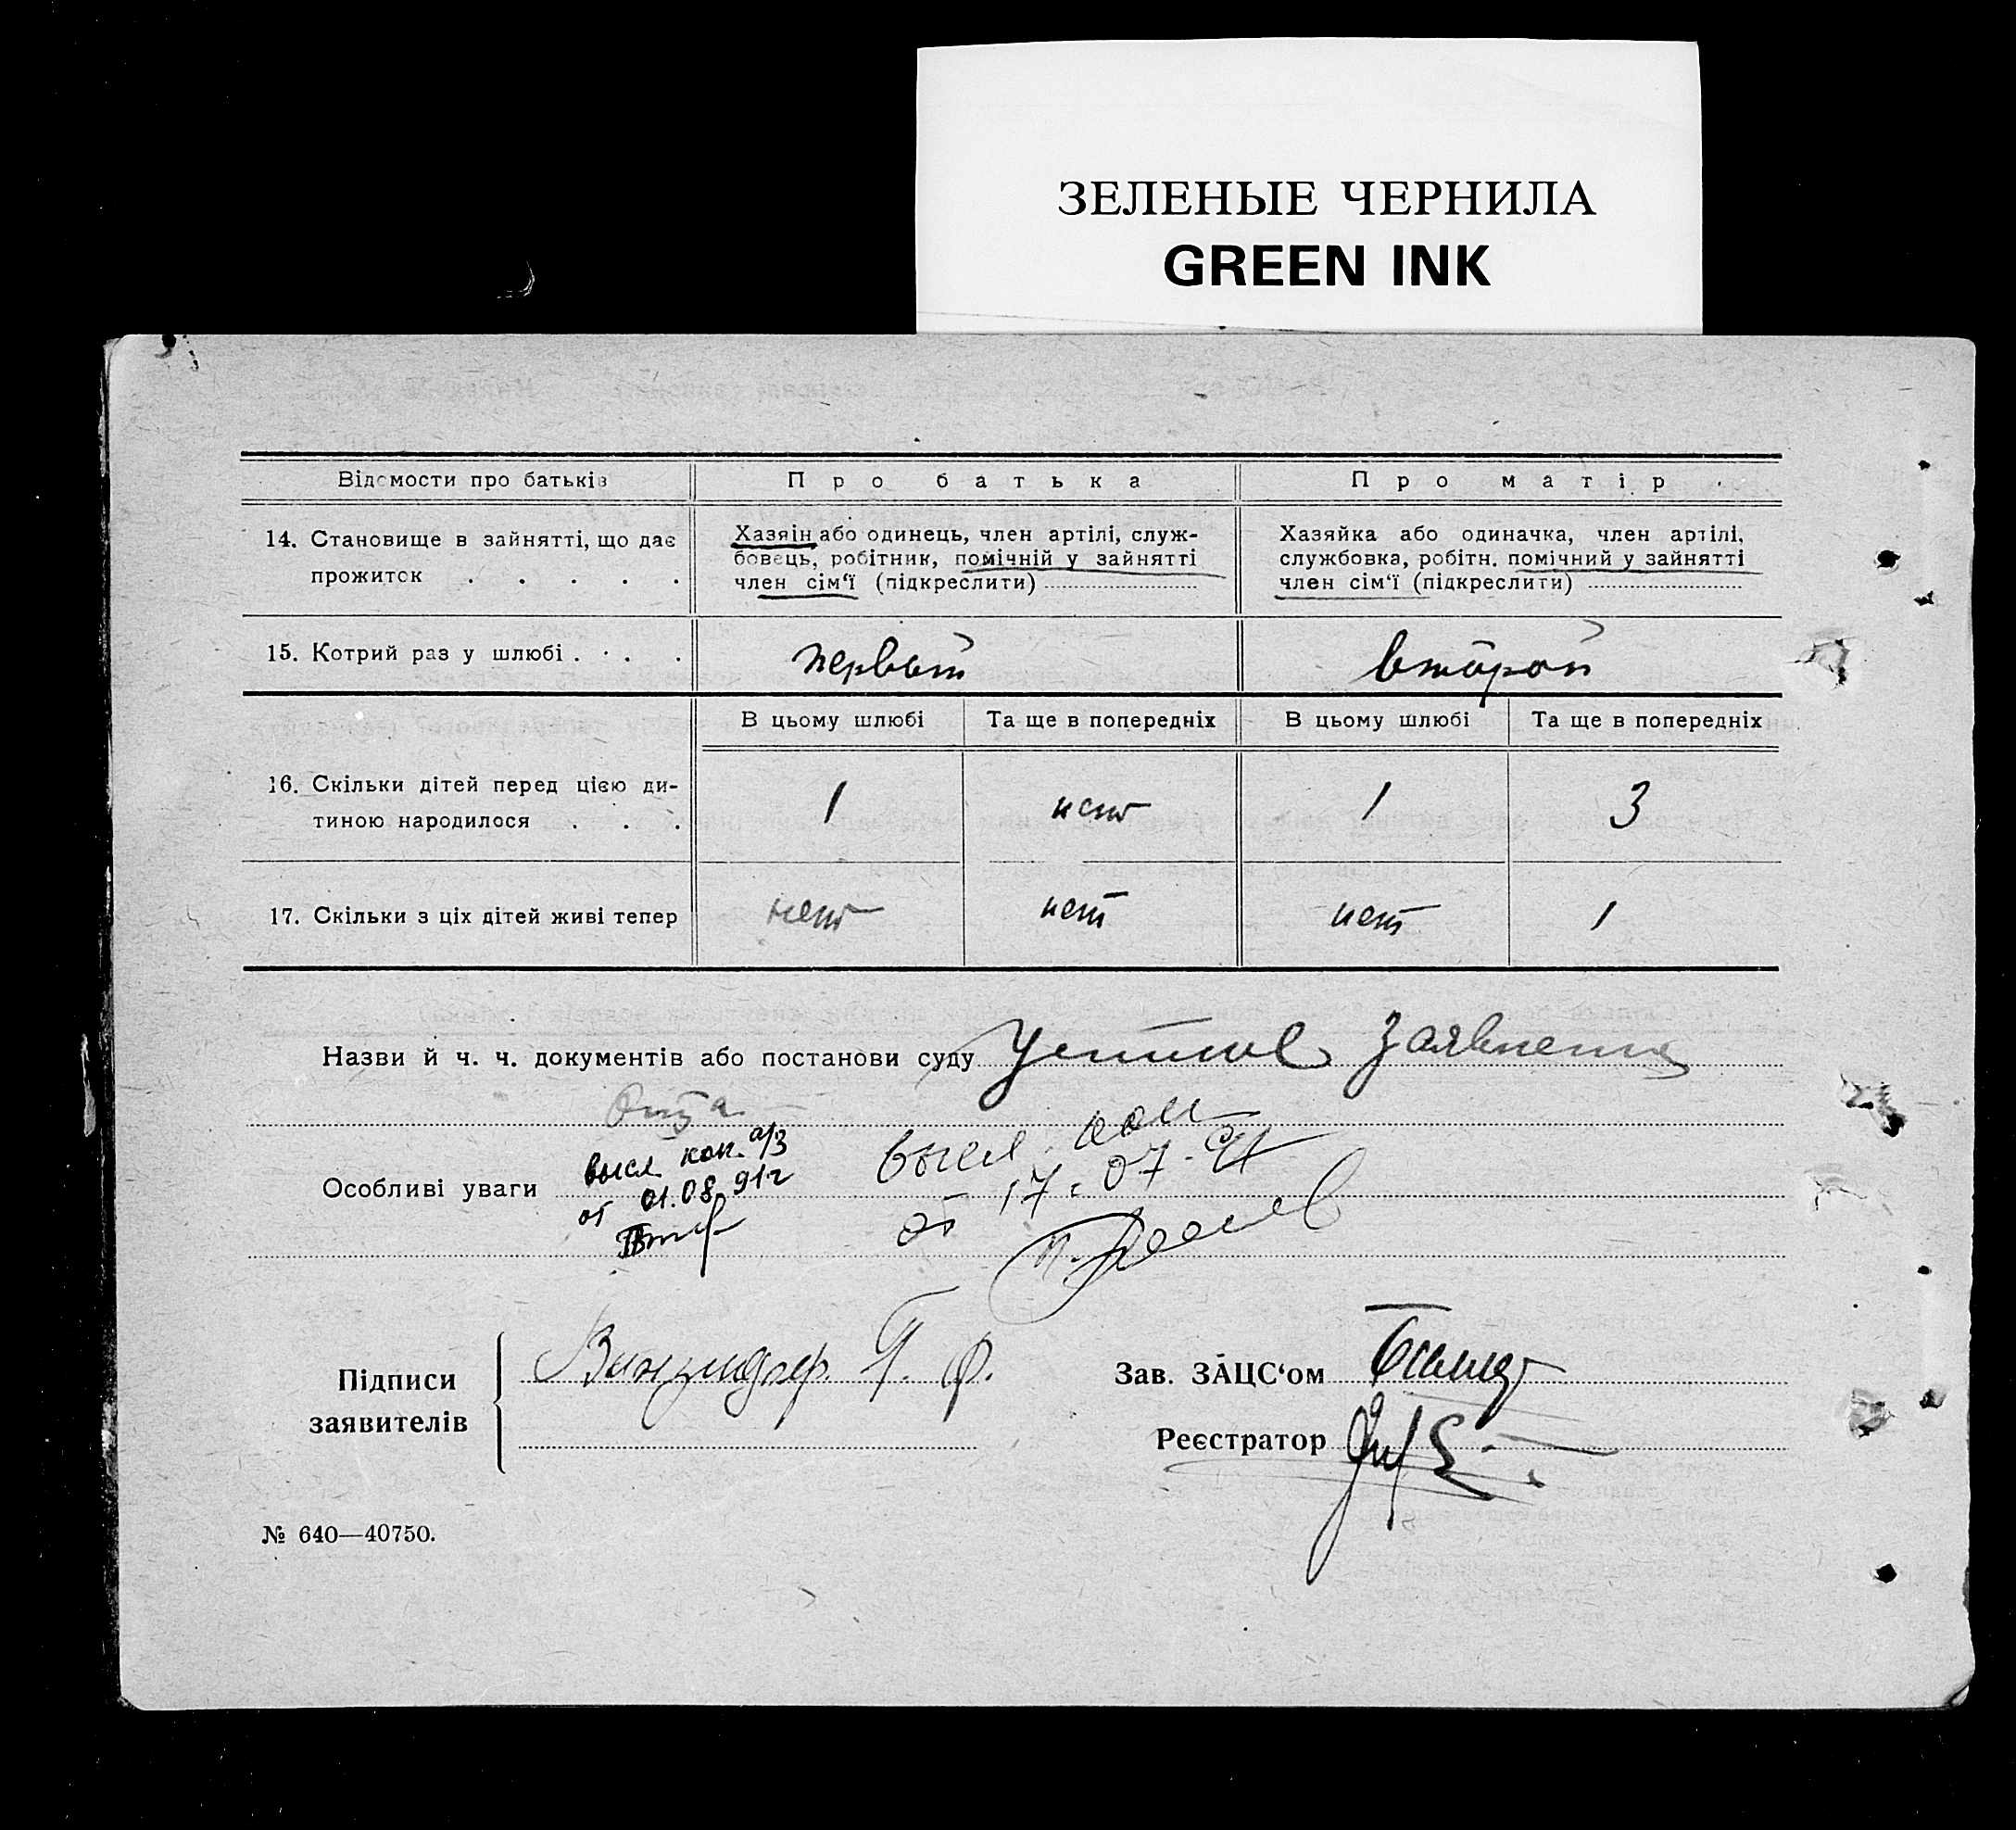 ЗЕЛЕНЫЕ ЧЕРНИЛА
GREEN INK
Відомости про батьків
Про батька
Про матір
14. Становище в зайнятті, що дає
прожиток . . . . .
Хазяін або одинець, член артілі, служ-
бовець, робітник, помічній у зайнятті
член сім‘ї (підкреслити)
Хазяйка або одиначка, член артілі,
службовка, робітн. помічний у зайнятті
член сім‘ї (підкреслити)
15. Котрий раз у шлюбі . . . .
первый
второй
В цьому шлюбі
Та ще в попередніх
В цьому шлюбі
Та ще в попередніх
16. Скільки дітей перед цією ди-
тиною народилося . . .
1
нет
1
3
17. Скільки з ціх дітей живі тепер
нет
нет
нет
1
Назви й ч. ч. документів або постанови суду
заявление
Особливі уваги
высл. коп. а/з
от 01.08.91г
высл. коп
от 17.07.91
Підписи
заявителів
Зав. ЗАЦС‘ом
Реєстратор
№ 640—40750.